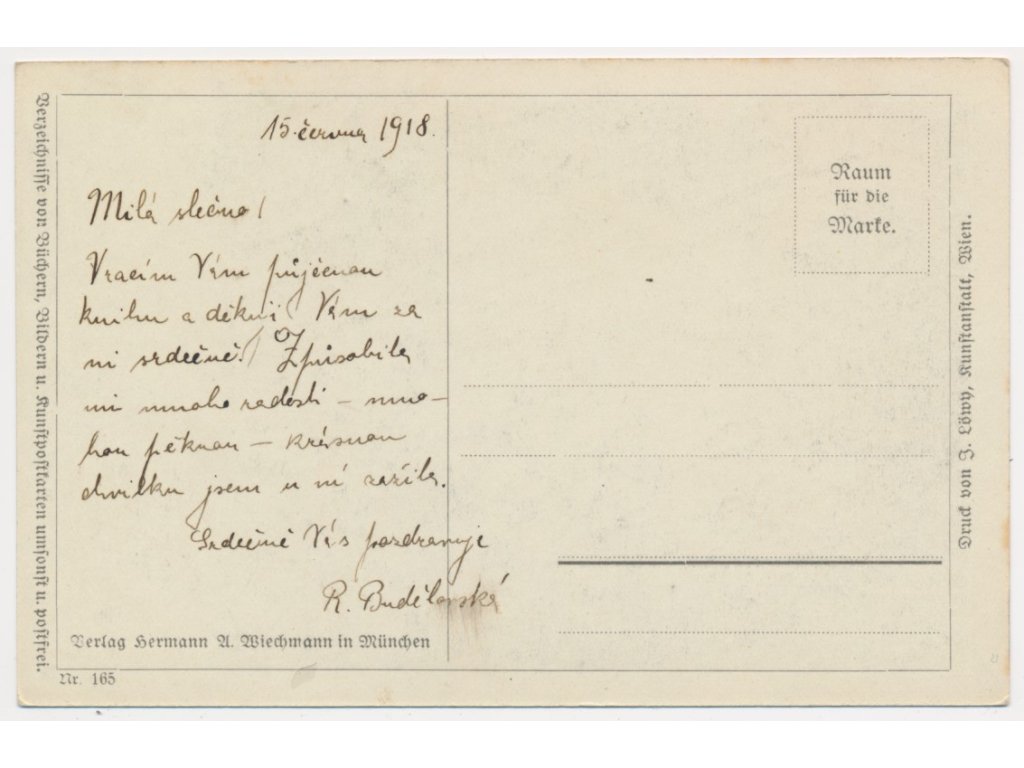 15. června 1918.
Milá slečno!
Vracím Vám půjčenou
knihu a děkuji Vám za
ni srdečně. Způsobila
mi mnoho radosti – mno-
hou pěknou – krásnou
chvilku jsem u ní zažila.
Srdečně Vás pozdravuje
R. Budělovská
Verlag Hermann A. Wiechmann in München
Nr. 165
Verzeichnisse von Büchern, Bildern u. Kunstpostkarten umsonst u. postfrei.
Raum
für die
Marke.
Druck von J. Löwy, Kunstanstalt, Wien.